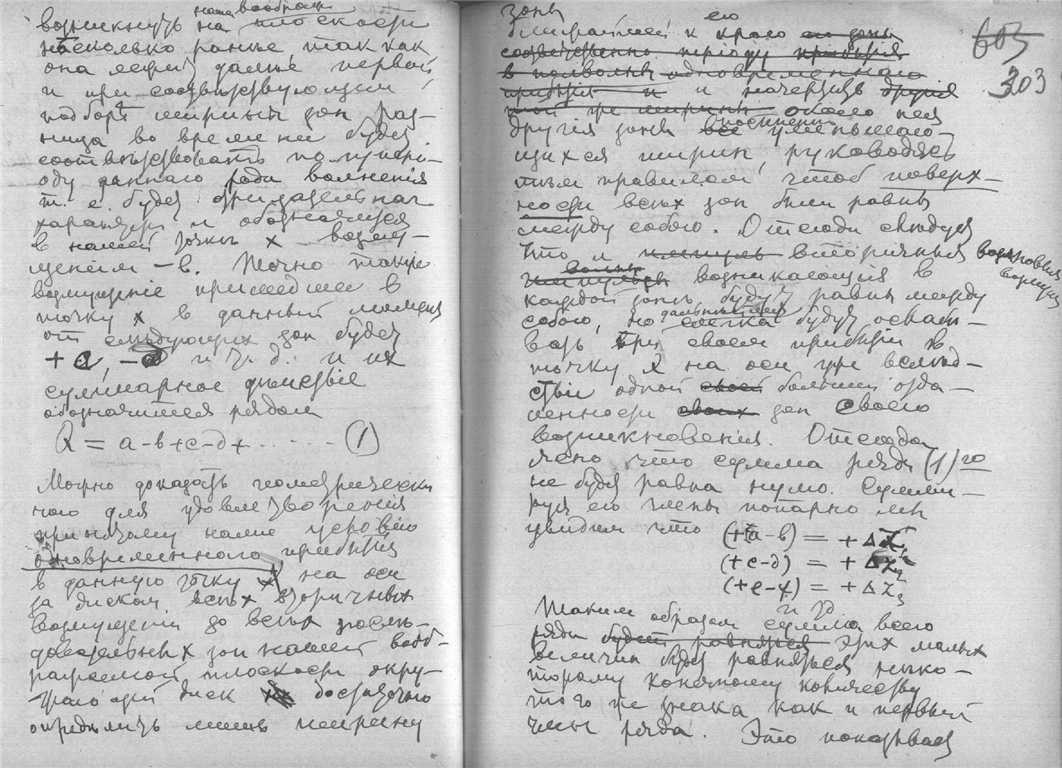 нашей воображ.
возникнуть на плоскости
несколько ранее так как
она лежит далее первой
и при соответствующем
подборе ширины зон раз-
ница во времени будет
соответствовать полупери-
оду даннаго рода волнения
т. е. будет отрицательная
характера и обозначится
в нашей точке x возму-
щением −в. Точно такие
возмущение пришедшие в
точку x в данный момент
от следующих зон будет
+ с, −d и т. д. и их
суммарное действие
обозначится рядом
Q = a−в+с−d+ . . . . . . (1)
Можно доказать геометрически
что для удовлетворения
принятому нами условию
одновременного прибытия
в данную точку x на оси
за диском всех вторичных
возмущений до всех после-
довательных зон нашей вооб-
ражаемой плоскости окру-
жающей диск достаточно
определить лишь ширину
зоны
ближайшей к краю его
603
303
соответственно периоду прибытия
в полволны одновременнаго
прибытия и и начертить другия
около нея
другия зоны все постепенно уменьшаю-
щихся ширин, руководясь
тем правилом, чтоб поверх-
ности всех зон были равны
между собою. Отсюда следует
что и вторичныя
волны возникающия в
каждой зоне, будут равны между
собою, но слегка будут ослаб-
вать при своем прибытии в
точку x на оси уже вследс-
твии одной своей большей отда-
ленности своих зон своего
возникновения. Отсюда
ясно что сумма ряда (1)го
не будет равна нулю. Сумми-
руя его члены попарно мы
увидим что (+a−b) = +Δ Z₁
(+c−d) = +Δ Z₂
(+e−f) = +Δ Z₃
и т.д.
Таким образом сумма всего
ряда будет равняться этих малых
величин будет равняться неко-
торому конечному количеству
того же знака как и первый
член ряда. Это показывает